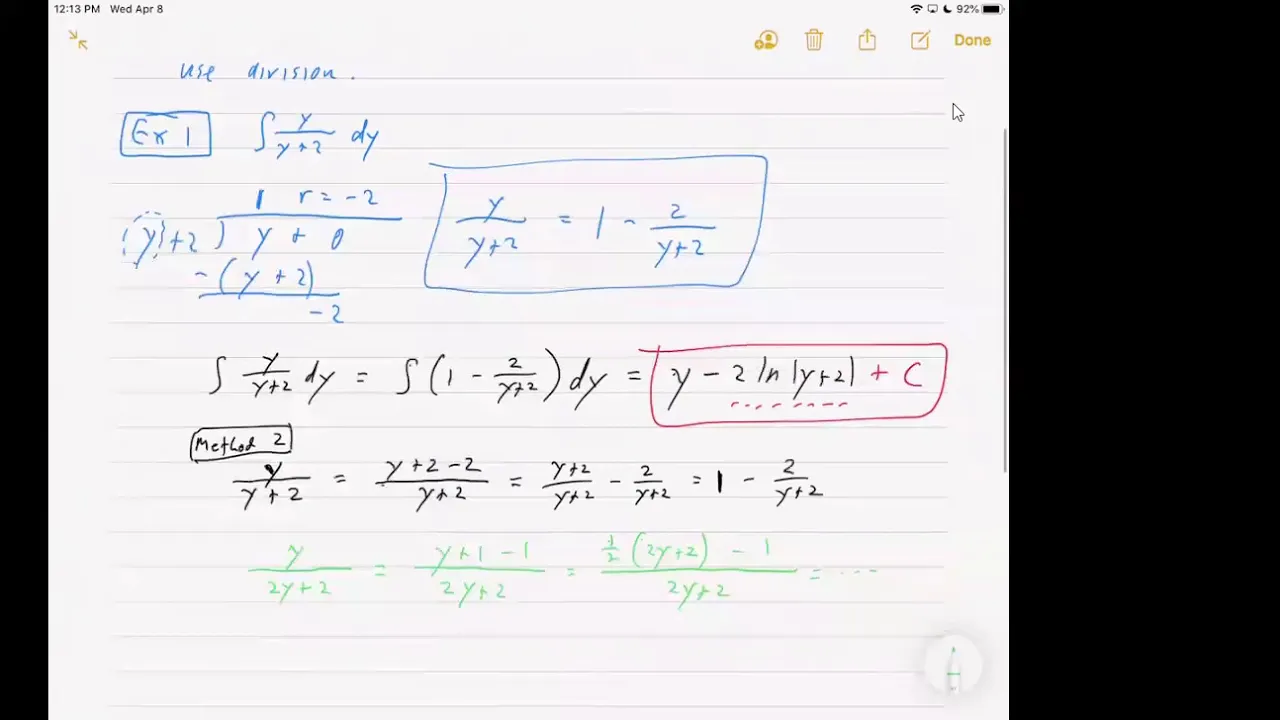 12:13 PM Wed Apr 8 92%
Done
Use division.
Ex 1 ∫ y/(y+2) dy
1 r = -2
(y)+2 ) y + 0
- (y + 2)
-2
y/(y+2) = 1 - 2/(y+2)
∫ y/(y+2) dy = ∫ (1 - 2/(y+2)) dy = y - 2 ln |y+2| + C
Method 2
y/(y+2) = (y+2-2)/(y+2) = (y+2)/(y+2) - 2/(y+2) = 1 - 2/(y+2)
y/(2y+2) = (y+1-1)/(2y+2) = (1/2 (2y+2) - 1)/(2y+2) = ...